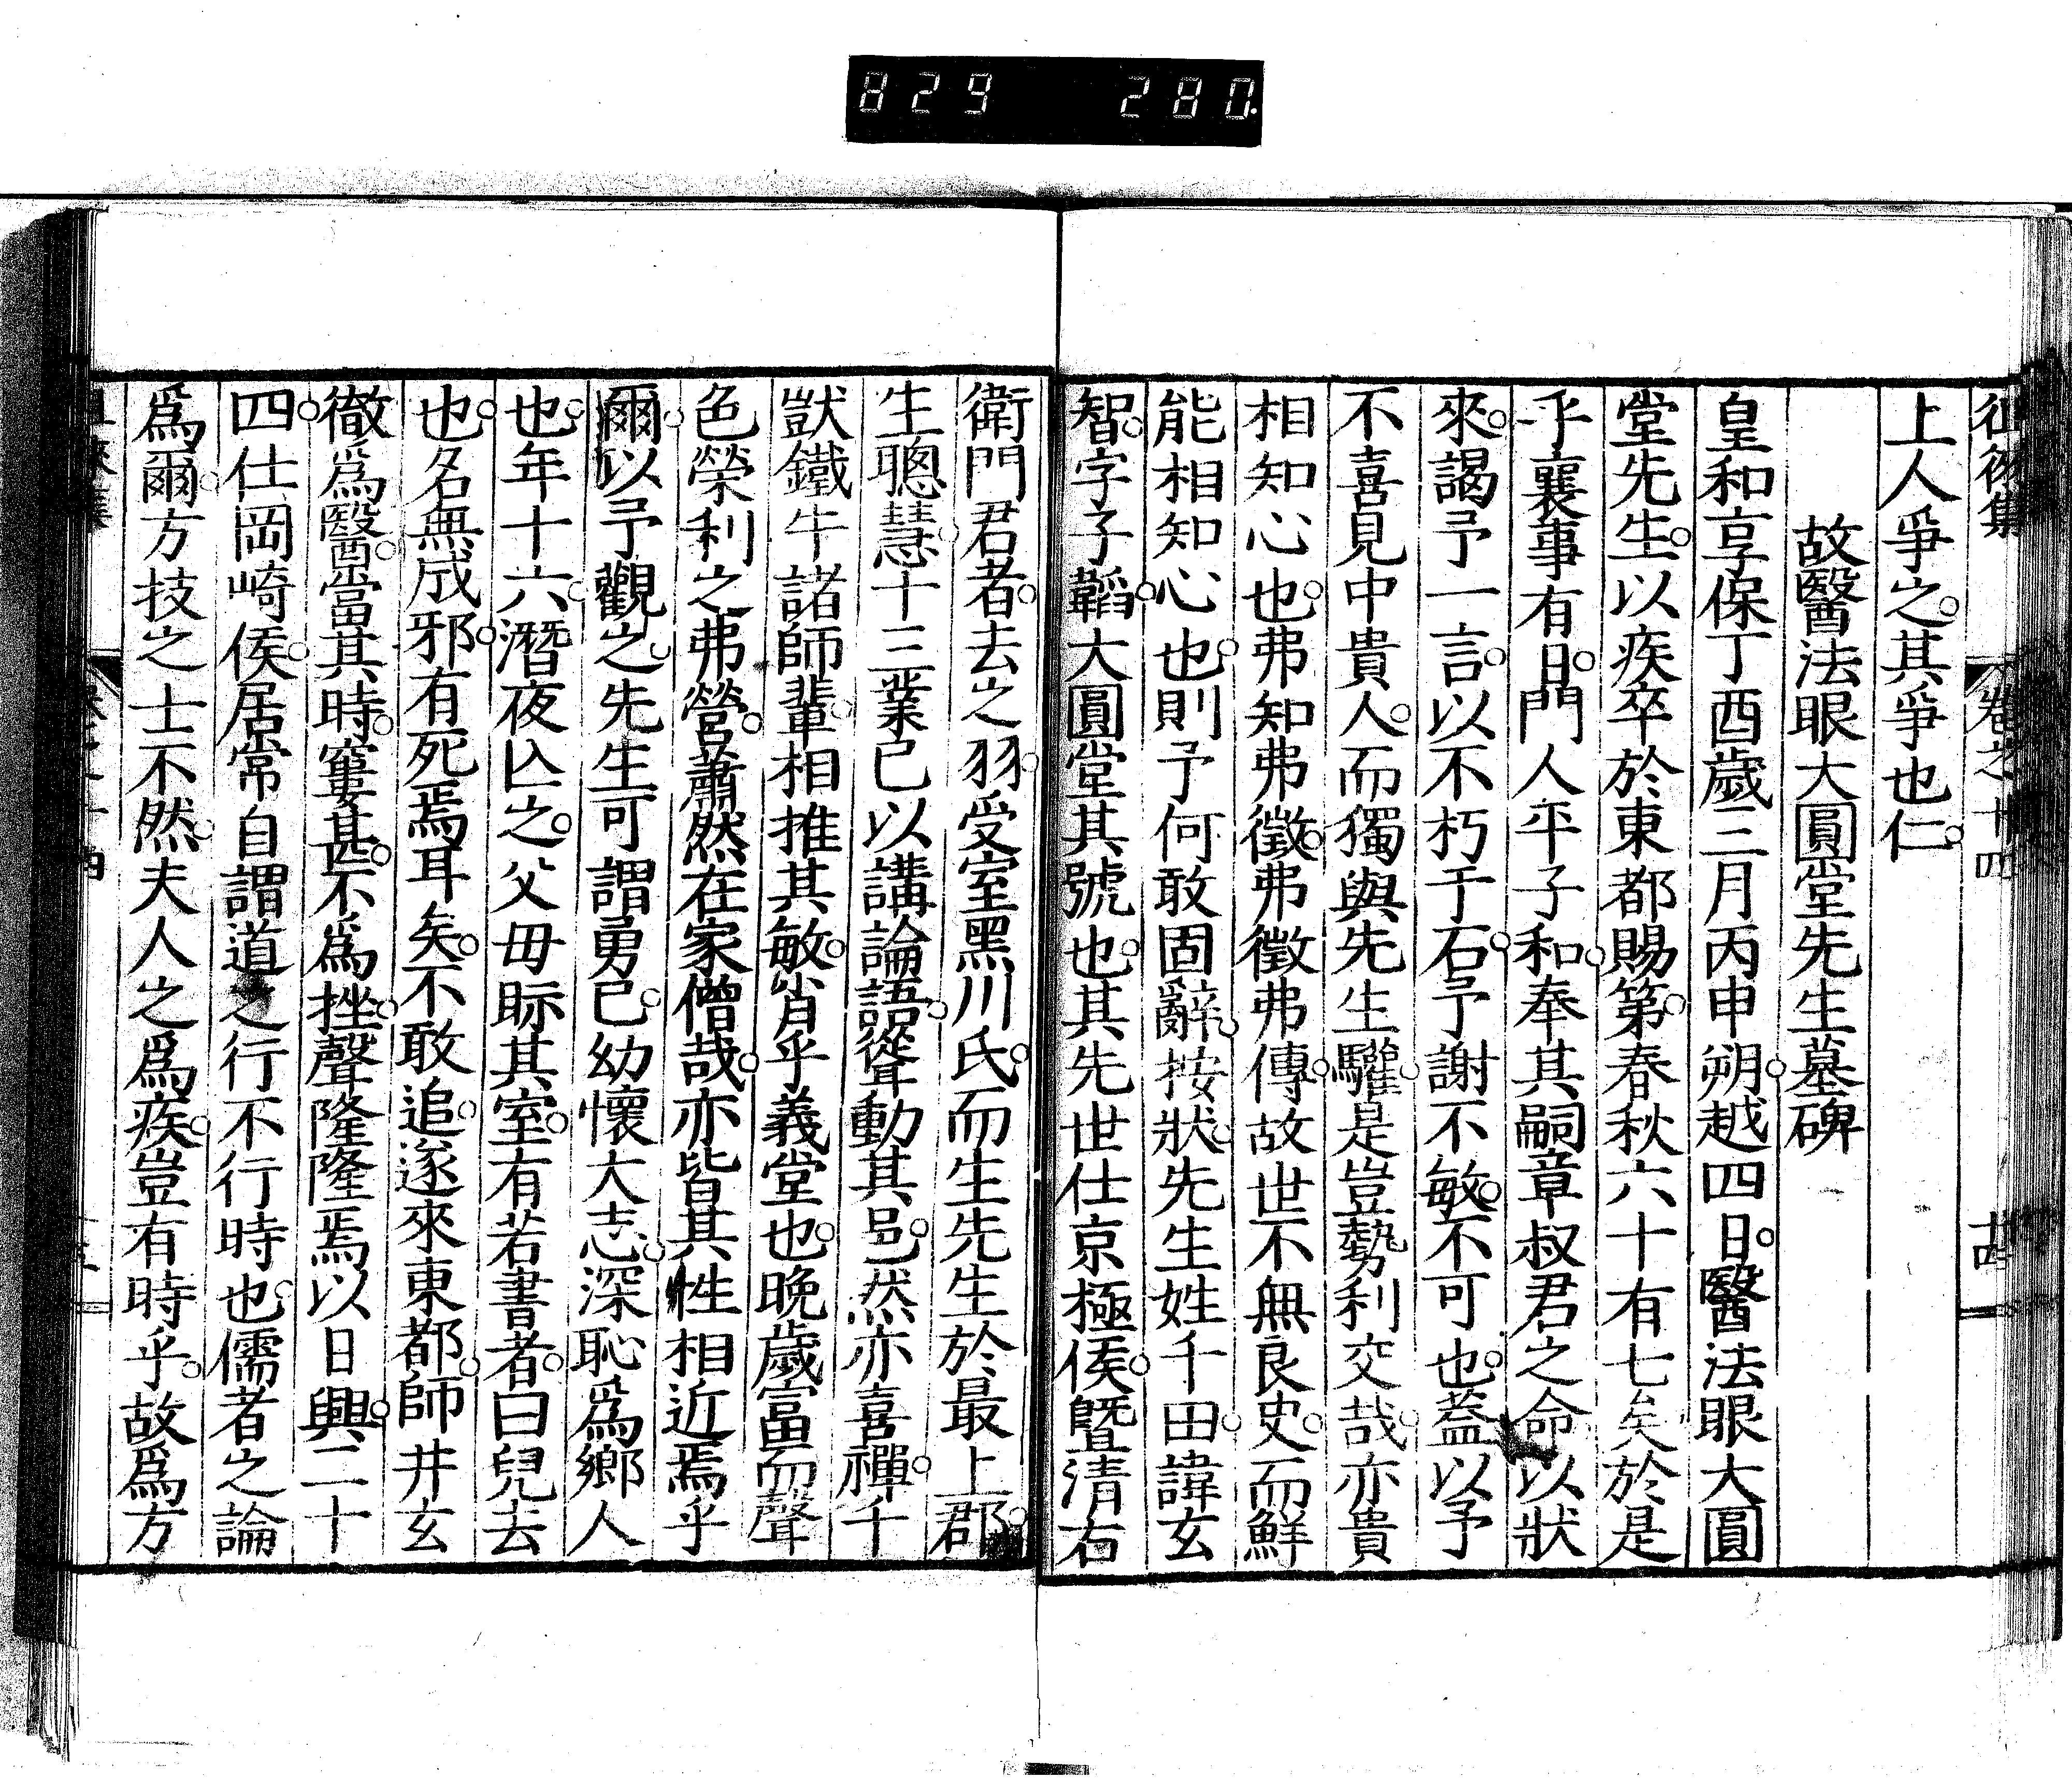 829 280.
徂徠集 卷之十四 十四
上人爭之。其爭也仁。
故醫法眼大圓堂先生墓碑
皇和享保丁酉歲三月丙申朔。越四日。醫法眼大圓
堂先生。以疾卒於東都賜第。春秋六十有七矣於是
乎襄事有日。門人平子和。奉其嗣章叔君之命以狀
來。謁予一言。以不朽于石。予謝不敏。不可也。蓋以予
不喜見中貴人。而獨與先生驩。是豈勢利交哉。亦貴
相知心也。弗知弗徵。弗徵弗傳。故世不無良史。而鮮
能相知心也。則予何敢固辭。按狀。先生姓千田。諱玄
智。字子韜。大圓堂其號也。其先世仕京極侯。曁清右
衛門君者。去之羽。受室黑川氏。而生先生於最上郡。
生聰慧。十三業已以講論語。聳動其邑。然亦喜禪。千
獃鐵牛諸師輩。相推其敏。肖乎義堂也。晚歲富而聲
色榮利之弗營。蕭然在家僧哉。亦皆其性相近焉乎
爾。以予觀之。先生可謂勇已。幼懷大志。深恥爲鄉人
也。年十六。潛夜亾之。父毋眎其室。有若書者。曰兒去
也。名無成邪。有死焉耳矣。不敢追。遂來東都。師井玄
徹爲醫。當其時。寠甚。不爲挫。聲隆隆焉以日興。二十
四。仕岡崎侯。居常自謂道之行不行時也。儒者之論
爲爾。方技之士不然。夫人之爲疾。豈有時乎。故爲方